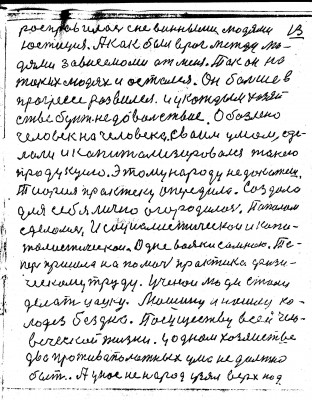 росправилась с не винными людями 13
юстиция. А как был врог между лю-
дями зависемоми от меня. Так он на
таких людях и остался. Он больше в
процесе развился. и у каждым хзяй
стве бунт недовольствие. Обозлено
человек на человека, своим умом, сде-
лали и капитализировался такою
продукцию. Этому народу не достатки.
Тиория практеку опередила. Создало
для себя лично огородилась. Потолом
сделалась, И социалистическои и капи-
толистическои. Одне волки самною. Те-
пер пришла на помоч практика физи-
ческому труду. Ученои люди стали
делат чашку. Машину и нашлу ко-
лодез бездна. По существу всей чело-
веческой жизни. у одном хозяистве
два противаположных ума не должно
быт. А у нас не народ узял верх под